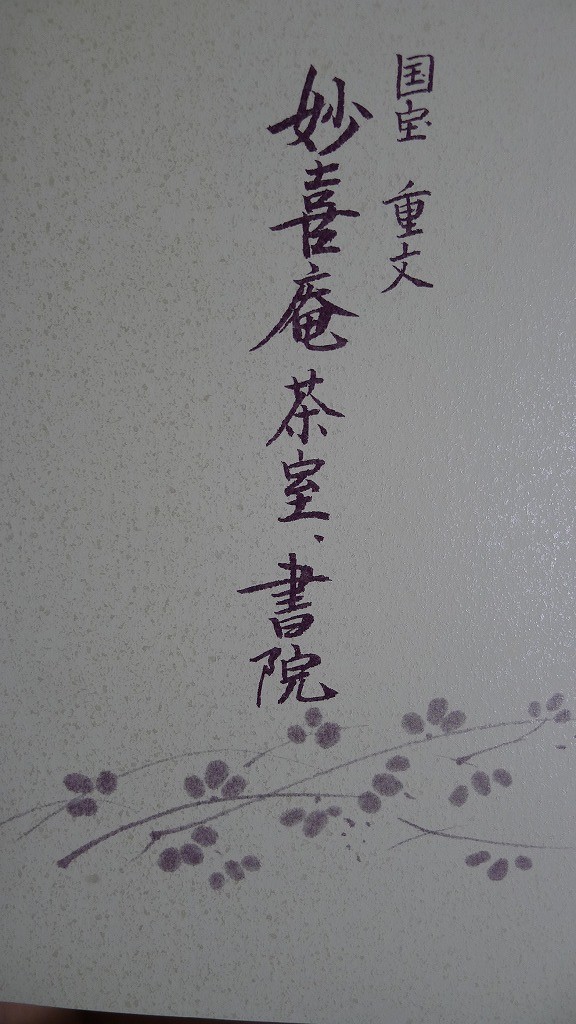 国宝 重文
妙喜庵 茶室、書院